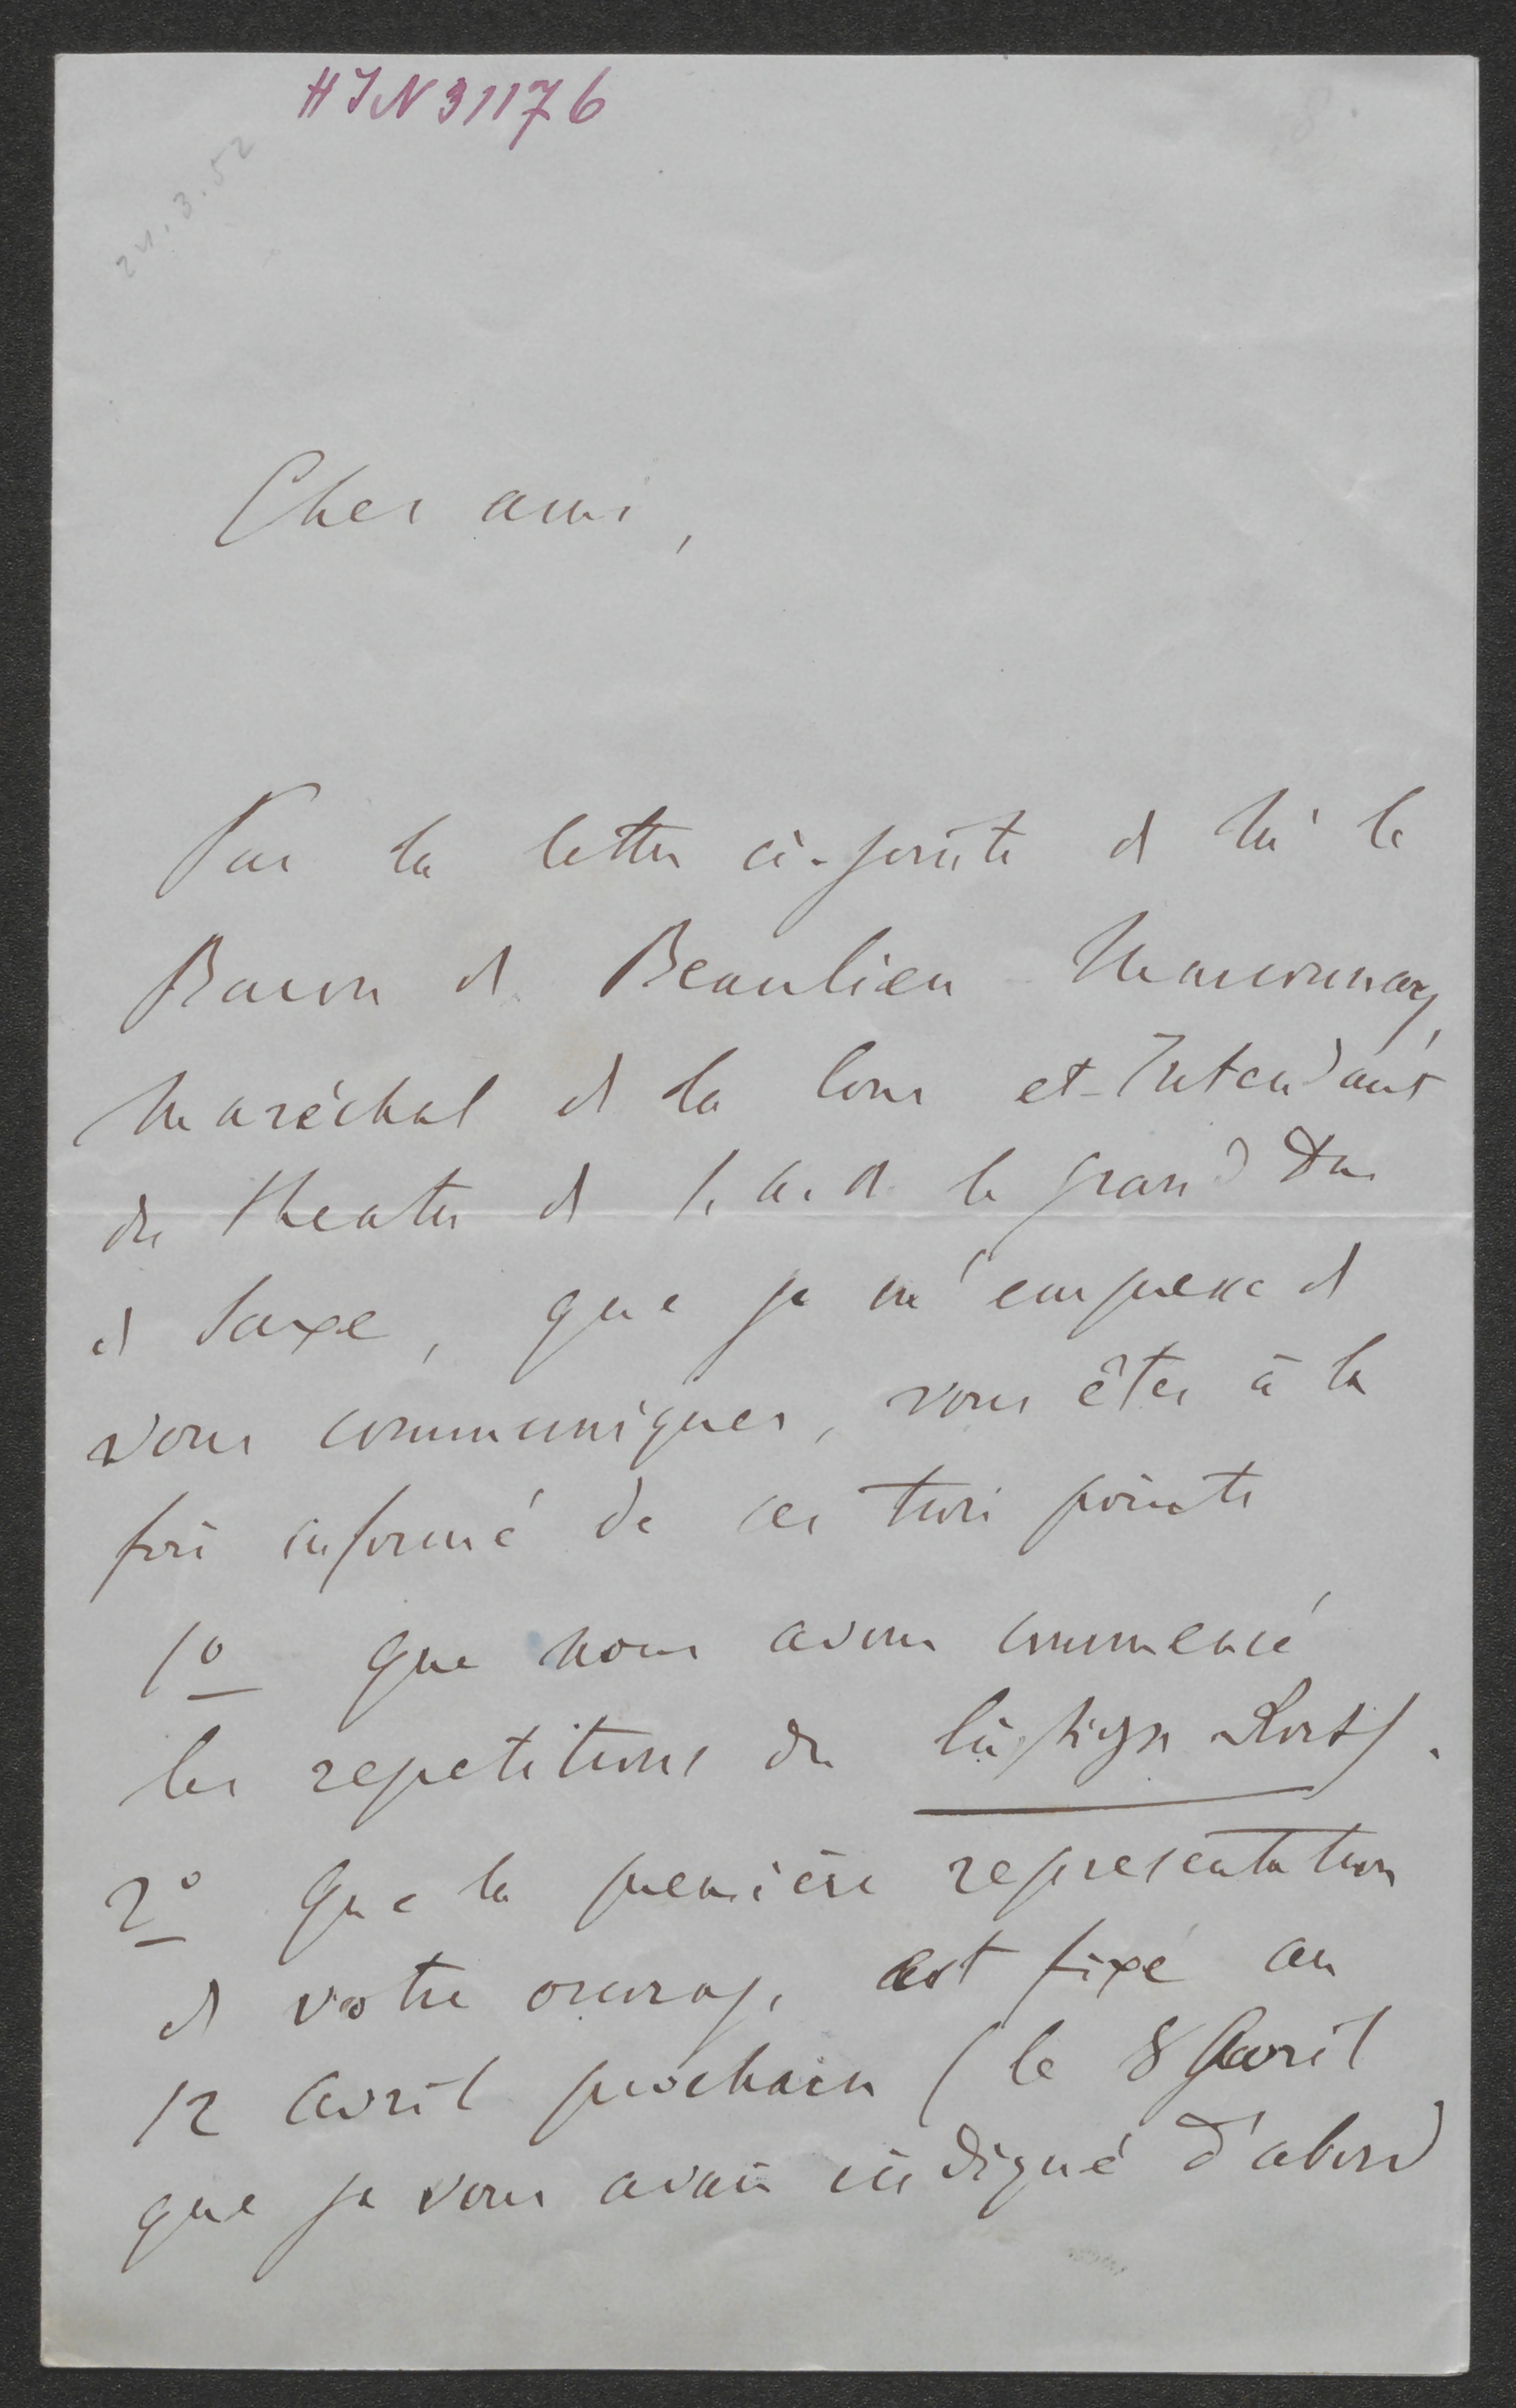 HIN 31176
24.3.52
8.
Cher ami,
Par la lettre ci-jointe de Mr le
Baron de Beaulieu Marconnay,
Maréchal de la Cour et Intendant
du theatre de S. A. R. le grand Duc
de Saxe, que je m'empresse de
vous communiquer, vous êtes à la
fois informé de ces trois points
1º que nous avons commencé
les repetitions du
2º que la première representation
de votre ouvrage est fixé au
12 avril prochain (le 8 avril
que je vous avais indiqué d'abord